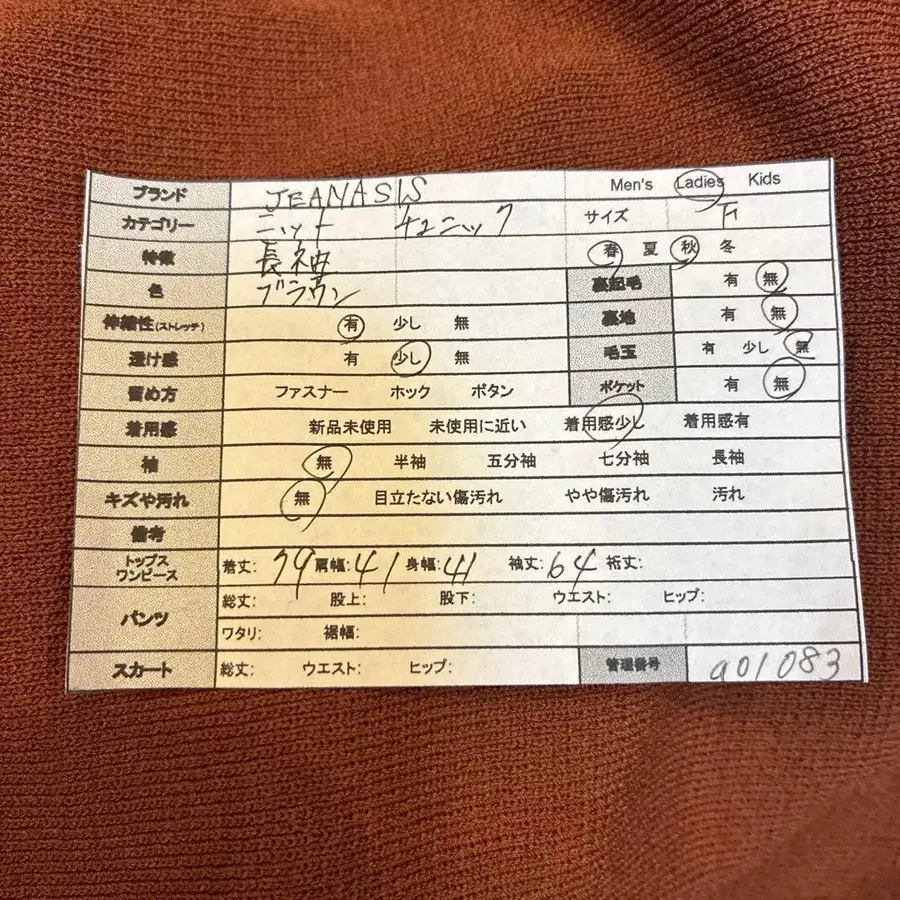 ブランド JEANASIS Men's Ladies Kids
カテゴリー ニット チュニック サイズ F
特徴 長袖 春 夏 秋 冬
色 ブラウン 裏起毛 有 無
伸縮性(ストレッチ) 有 少し 無 裏地 有 無
透け感 有 少し 無 毛玉 有 少し 無
留め方 ファスナー ホック ボタン ポケット 有 無
着用感 新品未使用 未使用に近い 着用感少し 着用感有
袖 無 半袖 五分袖 七分袖 長袖
キズや汚れ 無 目立たない傷汚れ やや傷汚れ 汚れ
備考
トップス ワンピース 着丈: 79 肩幅: 41 身幅: 41 袖丈: 64 裄丈:
パンツ 総丈: 股上: 股下: ウエスト: ヒップ:
ワタリ: 裾幅:
スカート 総丈: ウエスト: ヒップ: 管理番号 a01083